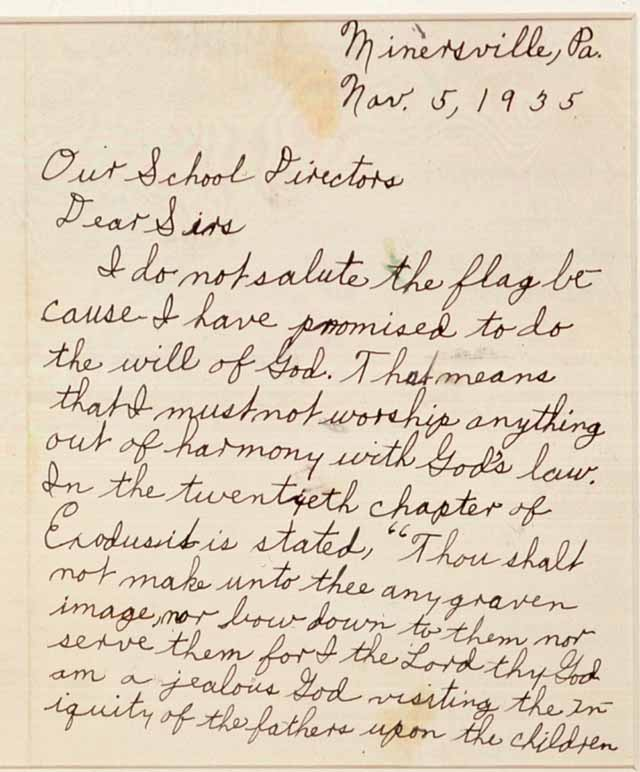 Minersville, Pa.
Nov. 5, 1935
Our School Directors
Dear Sirs
I do not salute the flag be
cause I have promised to do
the will of God. That means
that I must not worship anything
out of harmony with God's law.
In the twentyeth chapter of
Exodus it is stated, "Thou shalt
not make unto thee any graven
image, nor bow down to them nor
serve them for I the Lord thy God
am a jealous God visiting the in
iquity of the fathers upon the children